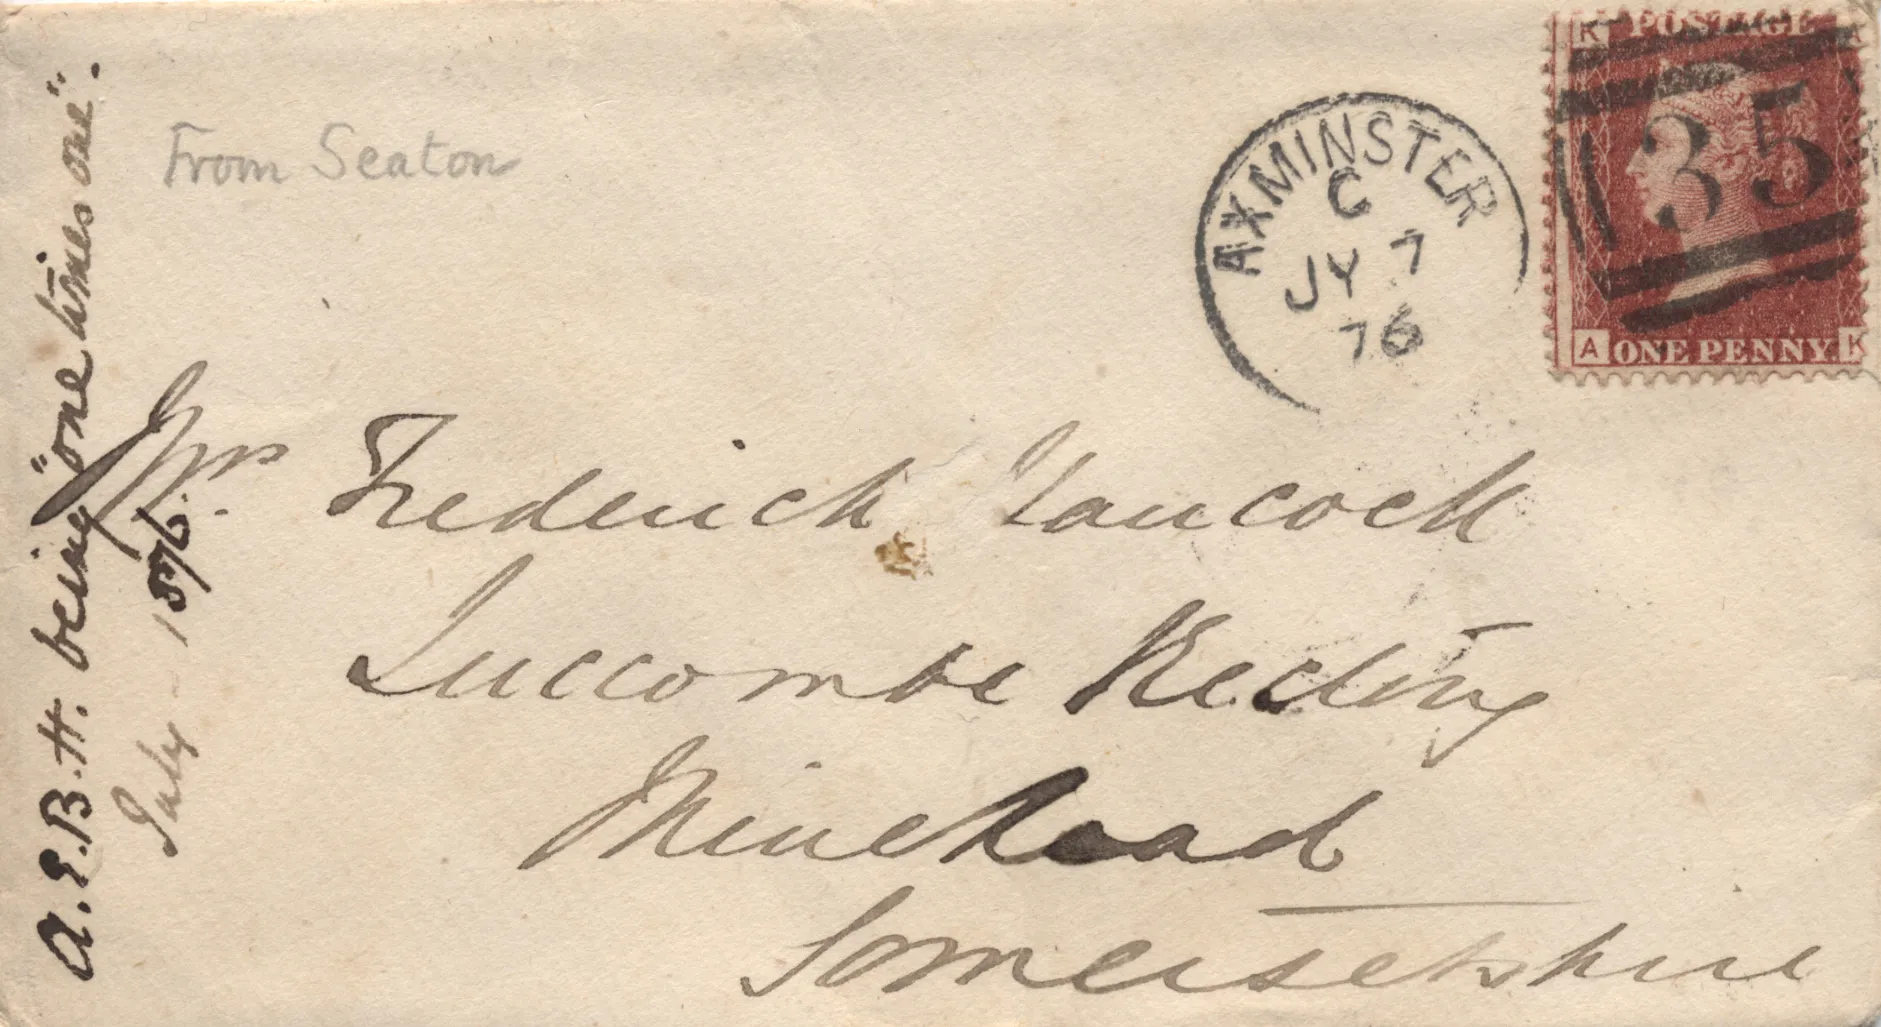 A.E.B.H. being "one times one".
July - 1876.
From Seaton
AXMINSTER
C
JY 7
76
K POSTAGE A
35
A ONE PENNY K
Mrs Frederick Hancock
Luccombe Rectory
Minehead
Somersetshire